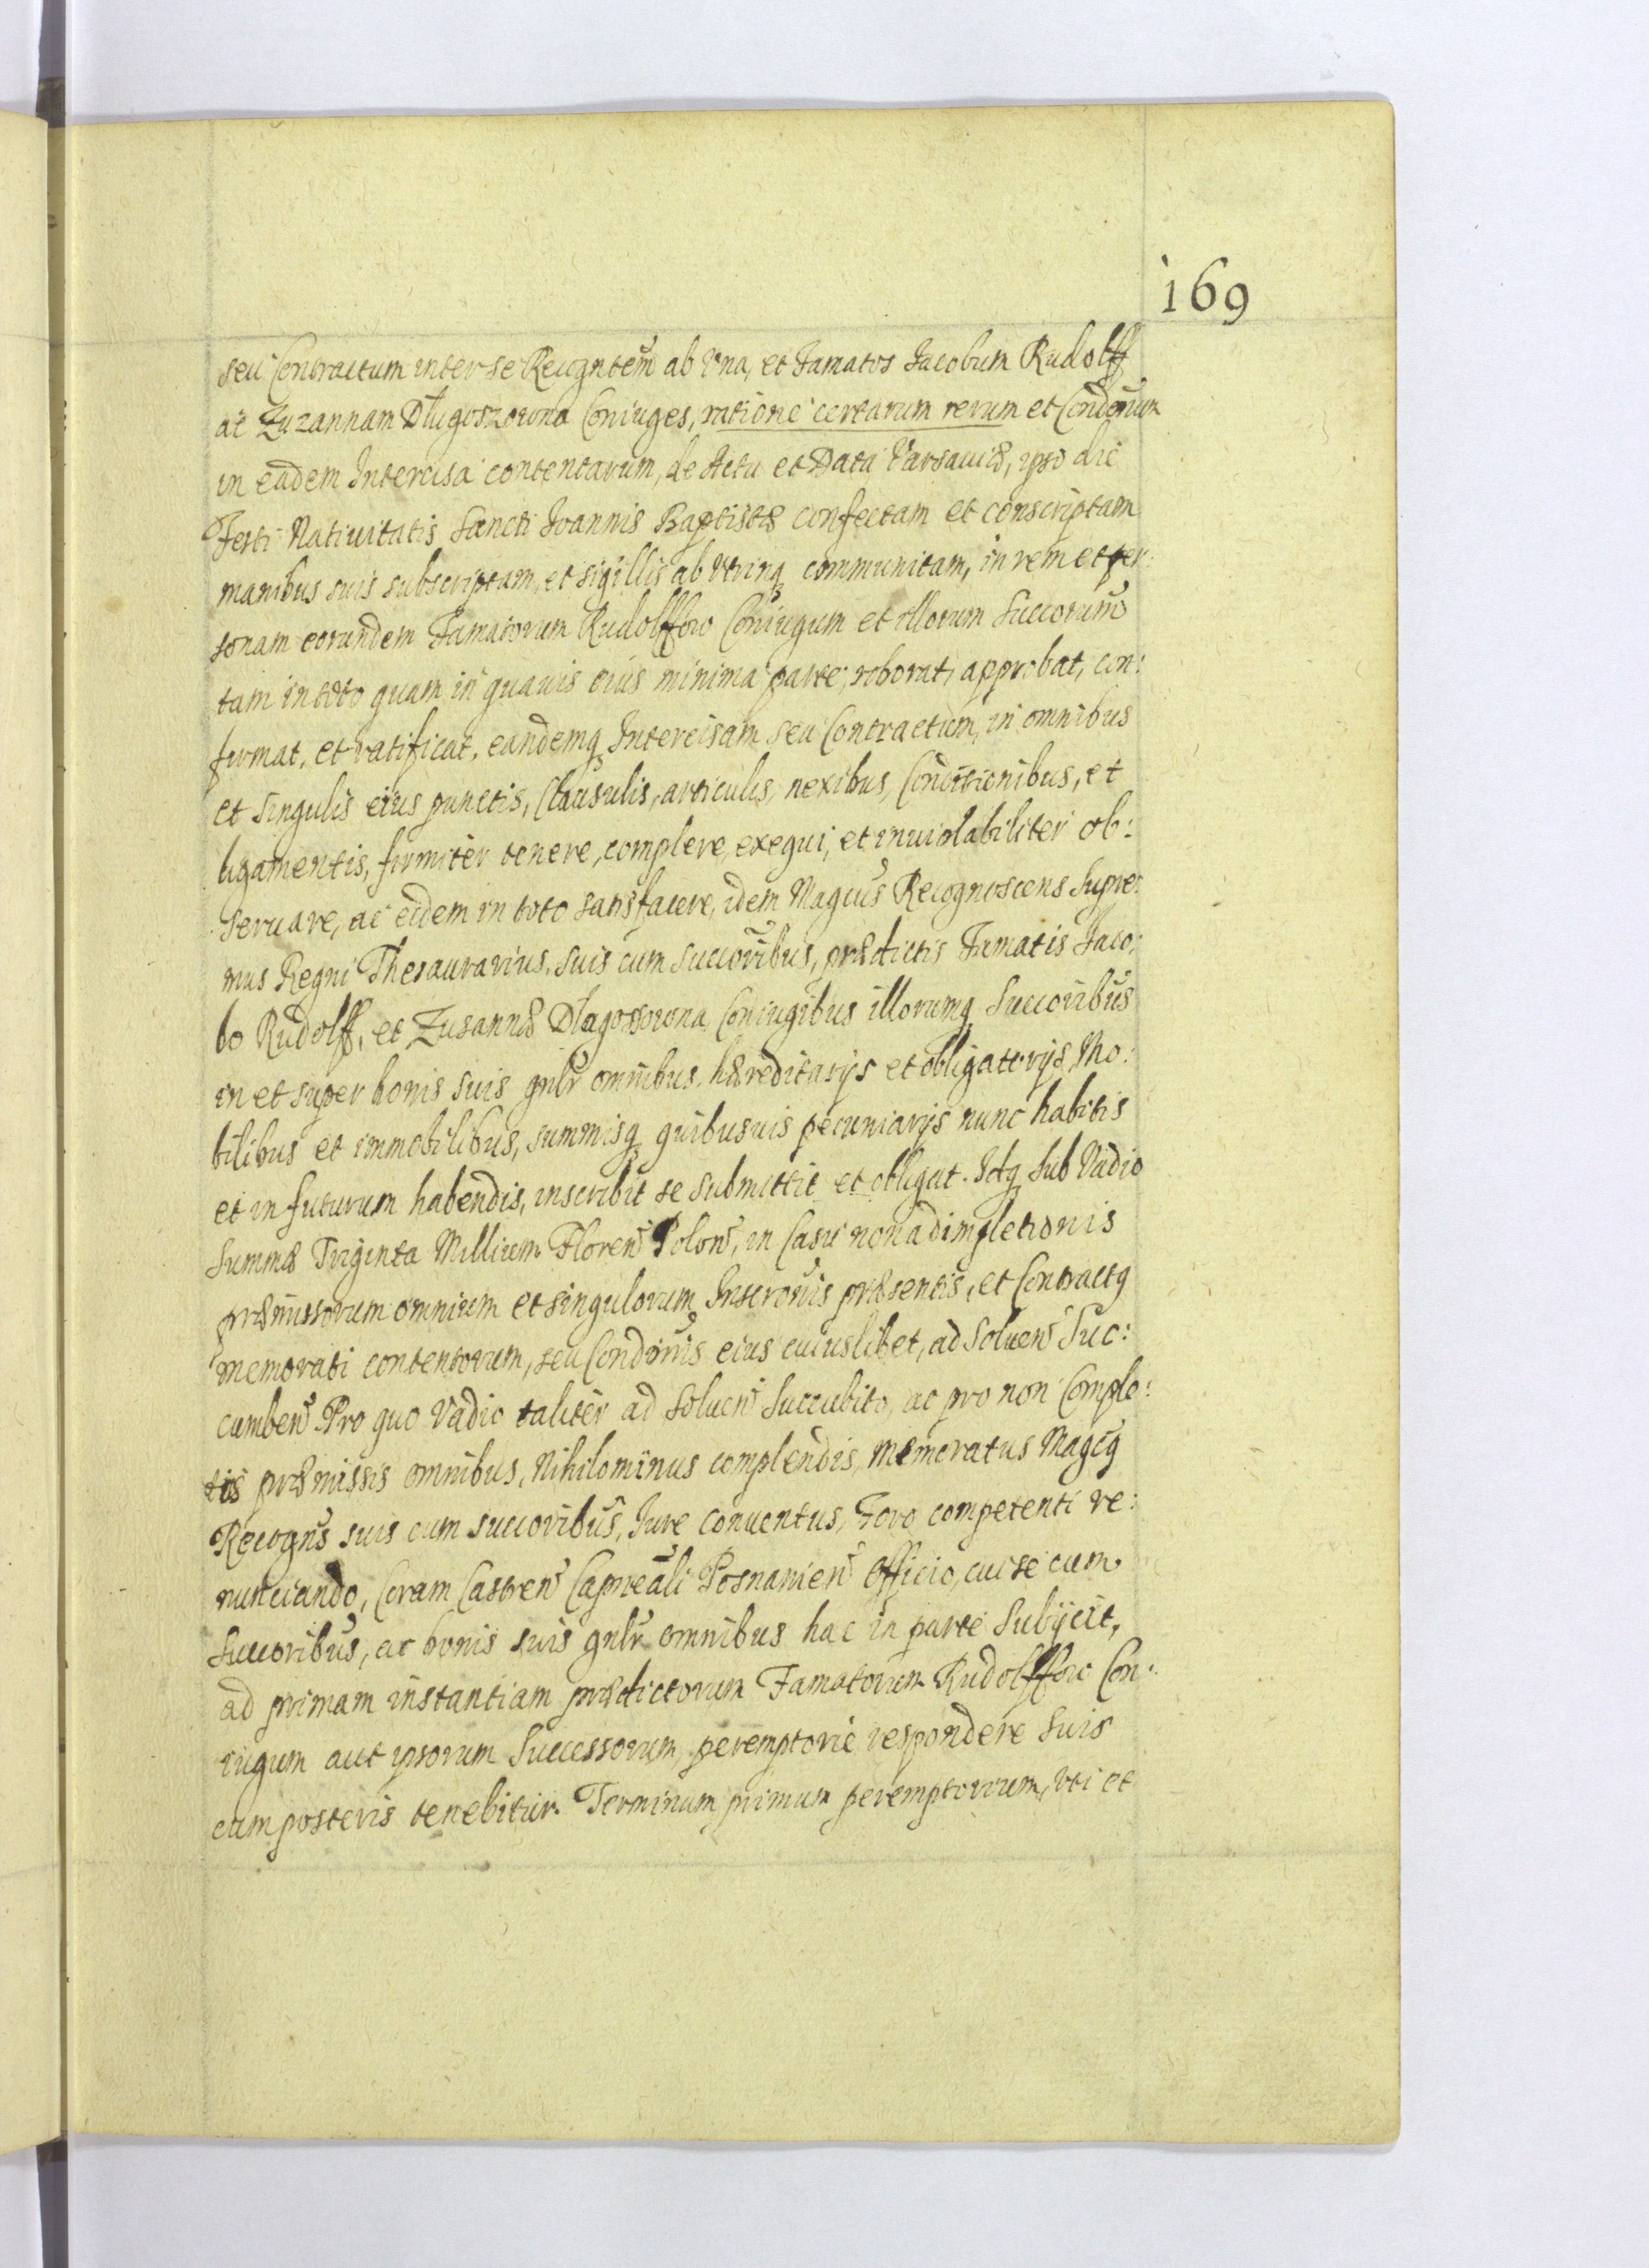 169
seu Contractum inter se Recogntem ab Una, et Famatos Jacobum Rudolff
ac Zuzannam Długoszowna Coniuges, ratione certarum rerum et Condnum
in eadem Intercisa contentarum, de Actu et Data Varsauiæ, ipso die
Festi Natiuitatis Sancti Joannis Baptistæ confectam et conscriptam
manibus suis subscriptam, et sigillis ab Utrinq communitam, in rem et per:
sonam eorundem Famatorum Rudolffow Coniugum et illorum Succorum
tam in toto quam in quauis eius minima parte, roborat, approbat, con:
firmat, et ratificat, eandemq Intercisam seu Contractum, in omnibus
et singulis eius punctis, Clausulis, articulis, nexibus, Conditionibus, et
ligamentis, firmiter tenere, complere, exequi, et inuiolabiliter ob:
seruare, ac eidem in toto satisfacere, idem Magcus Recognoscens Supre:
mus Regni Thesaurarius, suis cum succoribus, prædictis Famatis Jaco:
bo Rudolff, et Zusannæ Dlugossowna Coniugibus illorumq Succoribus
in et super bonis suis gnlr omnibus hæreditarijs et obligatorijs, Mo:
bilibus et immobilibus, summisq quibusuis pecuniarijs nunc habitis
et in futurum habendis, inscribit se submittit et obligat. Idq sub Vadio
Summæ Triginta Millium Floren Polon, in Casu non adimpletionis
præmissorum omnium et singulorum Inscronis præsentis, et Contractq
memorati contentorum, seu Condnis eius cuiuslibet, ad soluen Suc:
cumben. Pro quo Vadio taliter ad soluen Succubito, ac pro non Comple:
tis præmissis omnibus, Nihilominus complendis, Memoratus Magcq
Recogns suis cum succoribus, Jure conuentus, Foro competenti re:
nunciando, Coram Castren Capneali Posnanien Officio, cui se cum
Succoribus, ac bonis suis gnlr omnibus hac in parte Subijcit,
ad primam instantiam prædictorum Famatorum Rudolffow Con:
iugum aut ipsorum Successorum, peremptorie respondere Suis
cum posteris tenebitur. Terminum primum peremptorium, Uti et